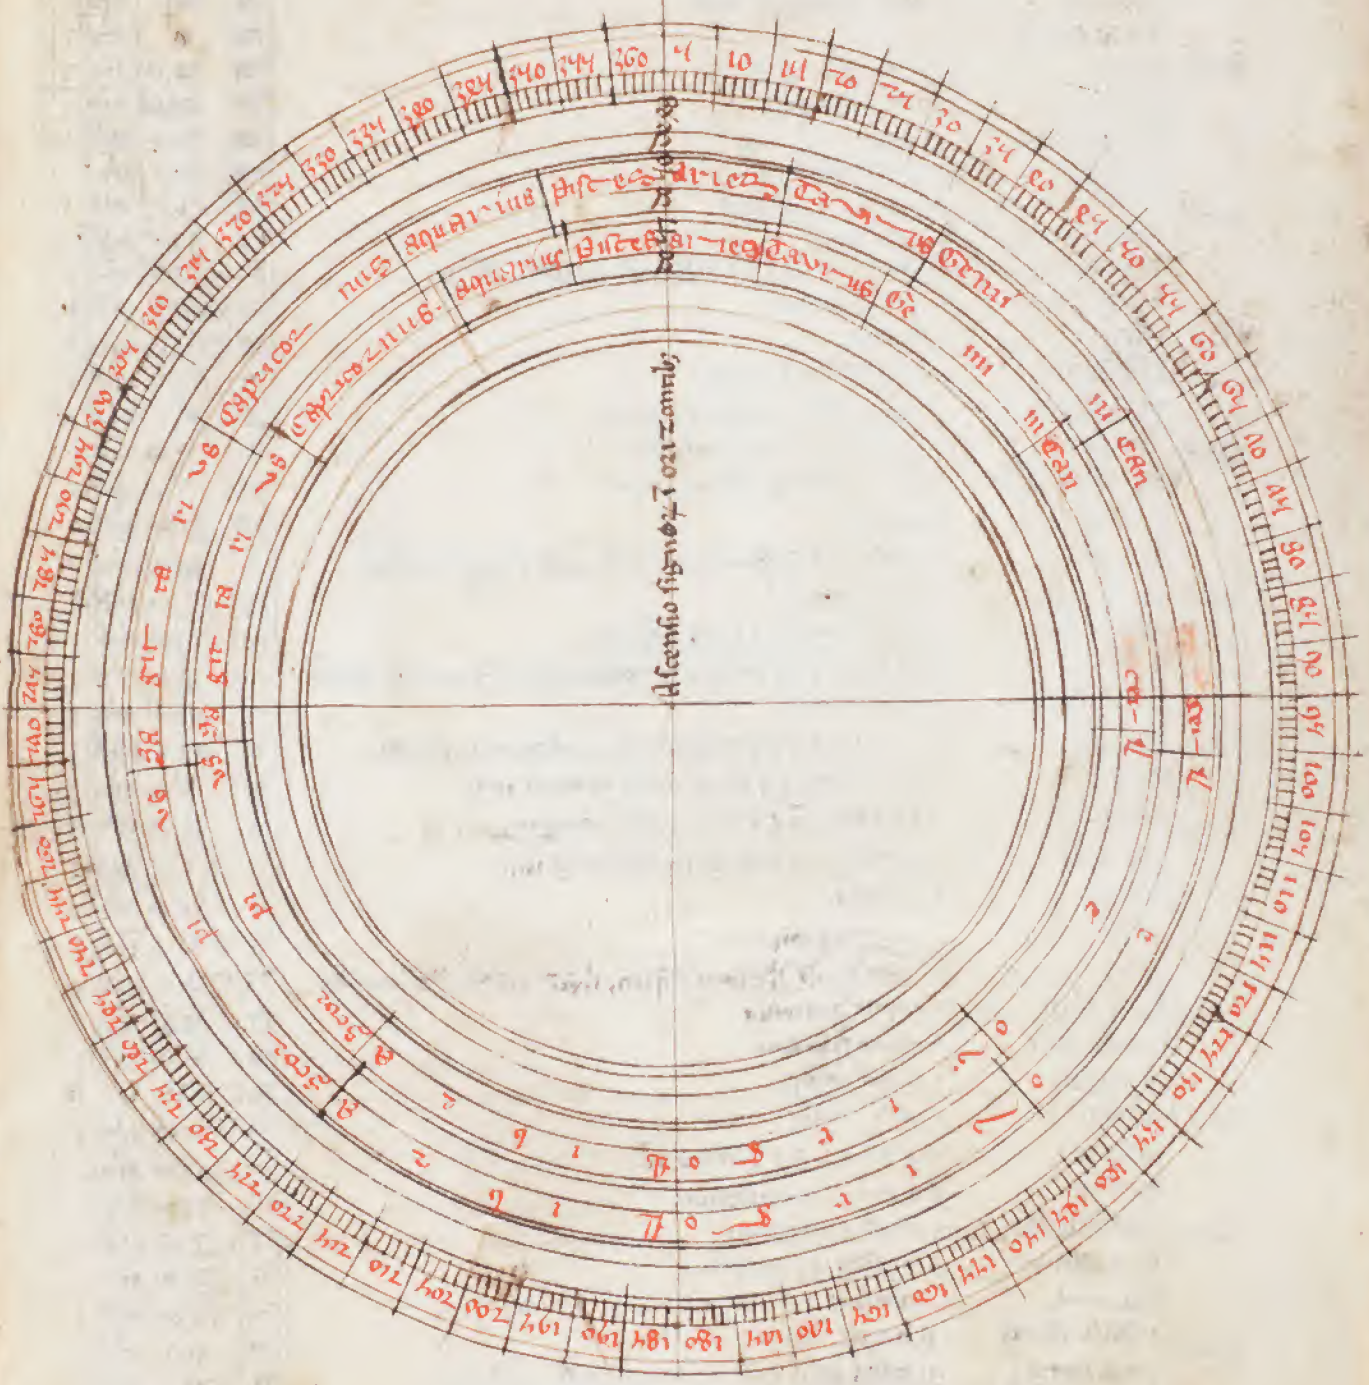 5 10 15 20 25 30 35 40 45 50 55 60 65 70 75 80 85 90 95 100 105 110 115 120 125 130 135 140 145 150 155 160 165 170 175 180 185 190 195 200 205 210 215 220 225 230 235 240 245 250 255 260 265 270 275 280 285 290 295 300 305 310 315 320 325 330 335 340 345 350 355 360
Aries Taurus Gemini Cancer leo Virgo libra Scorpius Sagittarius Capricornus Aquarius Pisces
Aries Taurus Gemini Cancer leo Virgo libra Scorpius Sagittarius Capricornus Aquarius Pisces
Ascensio signoꝝ ī orizontibꝫ